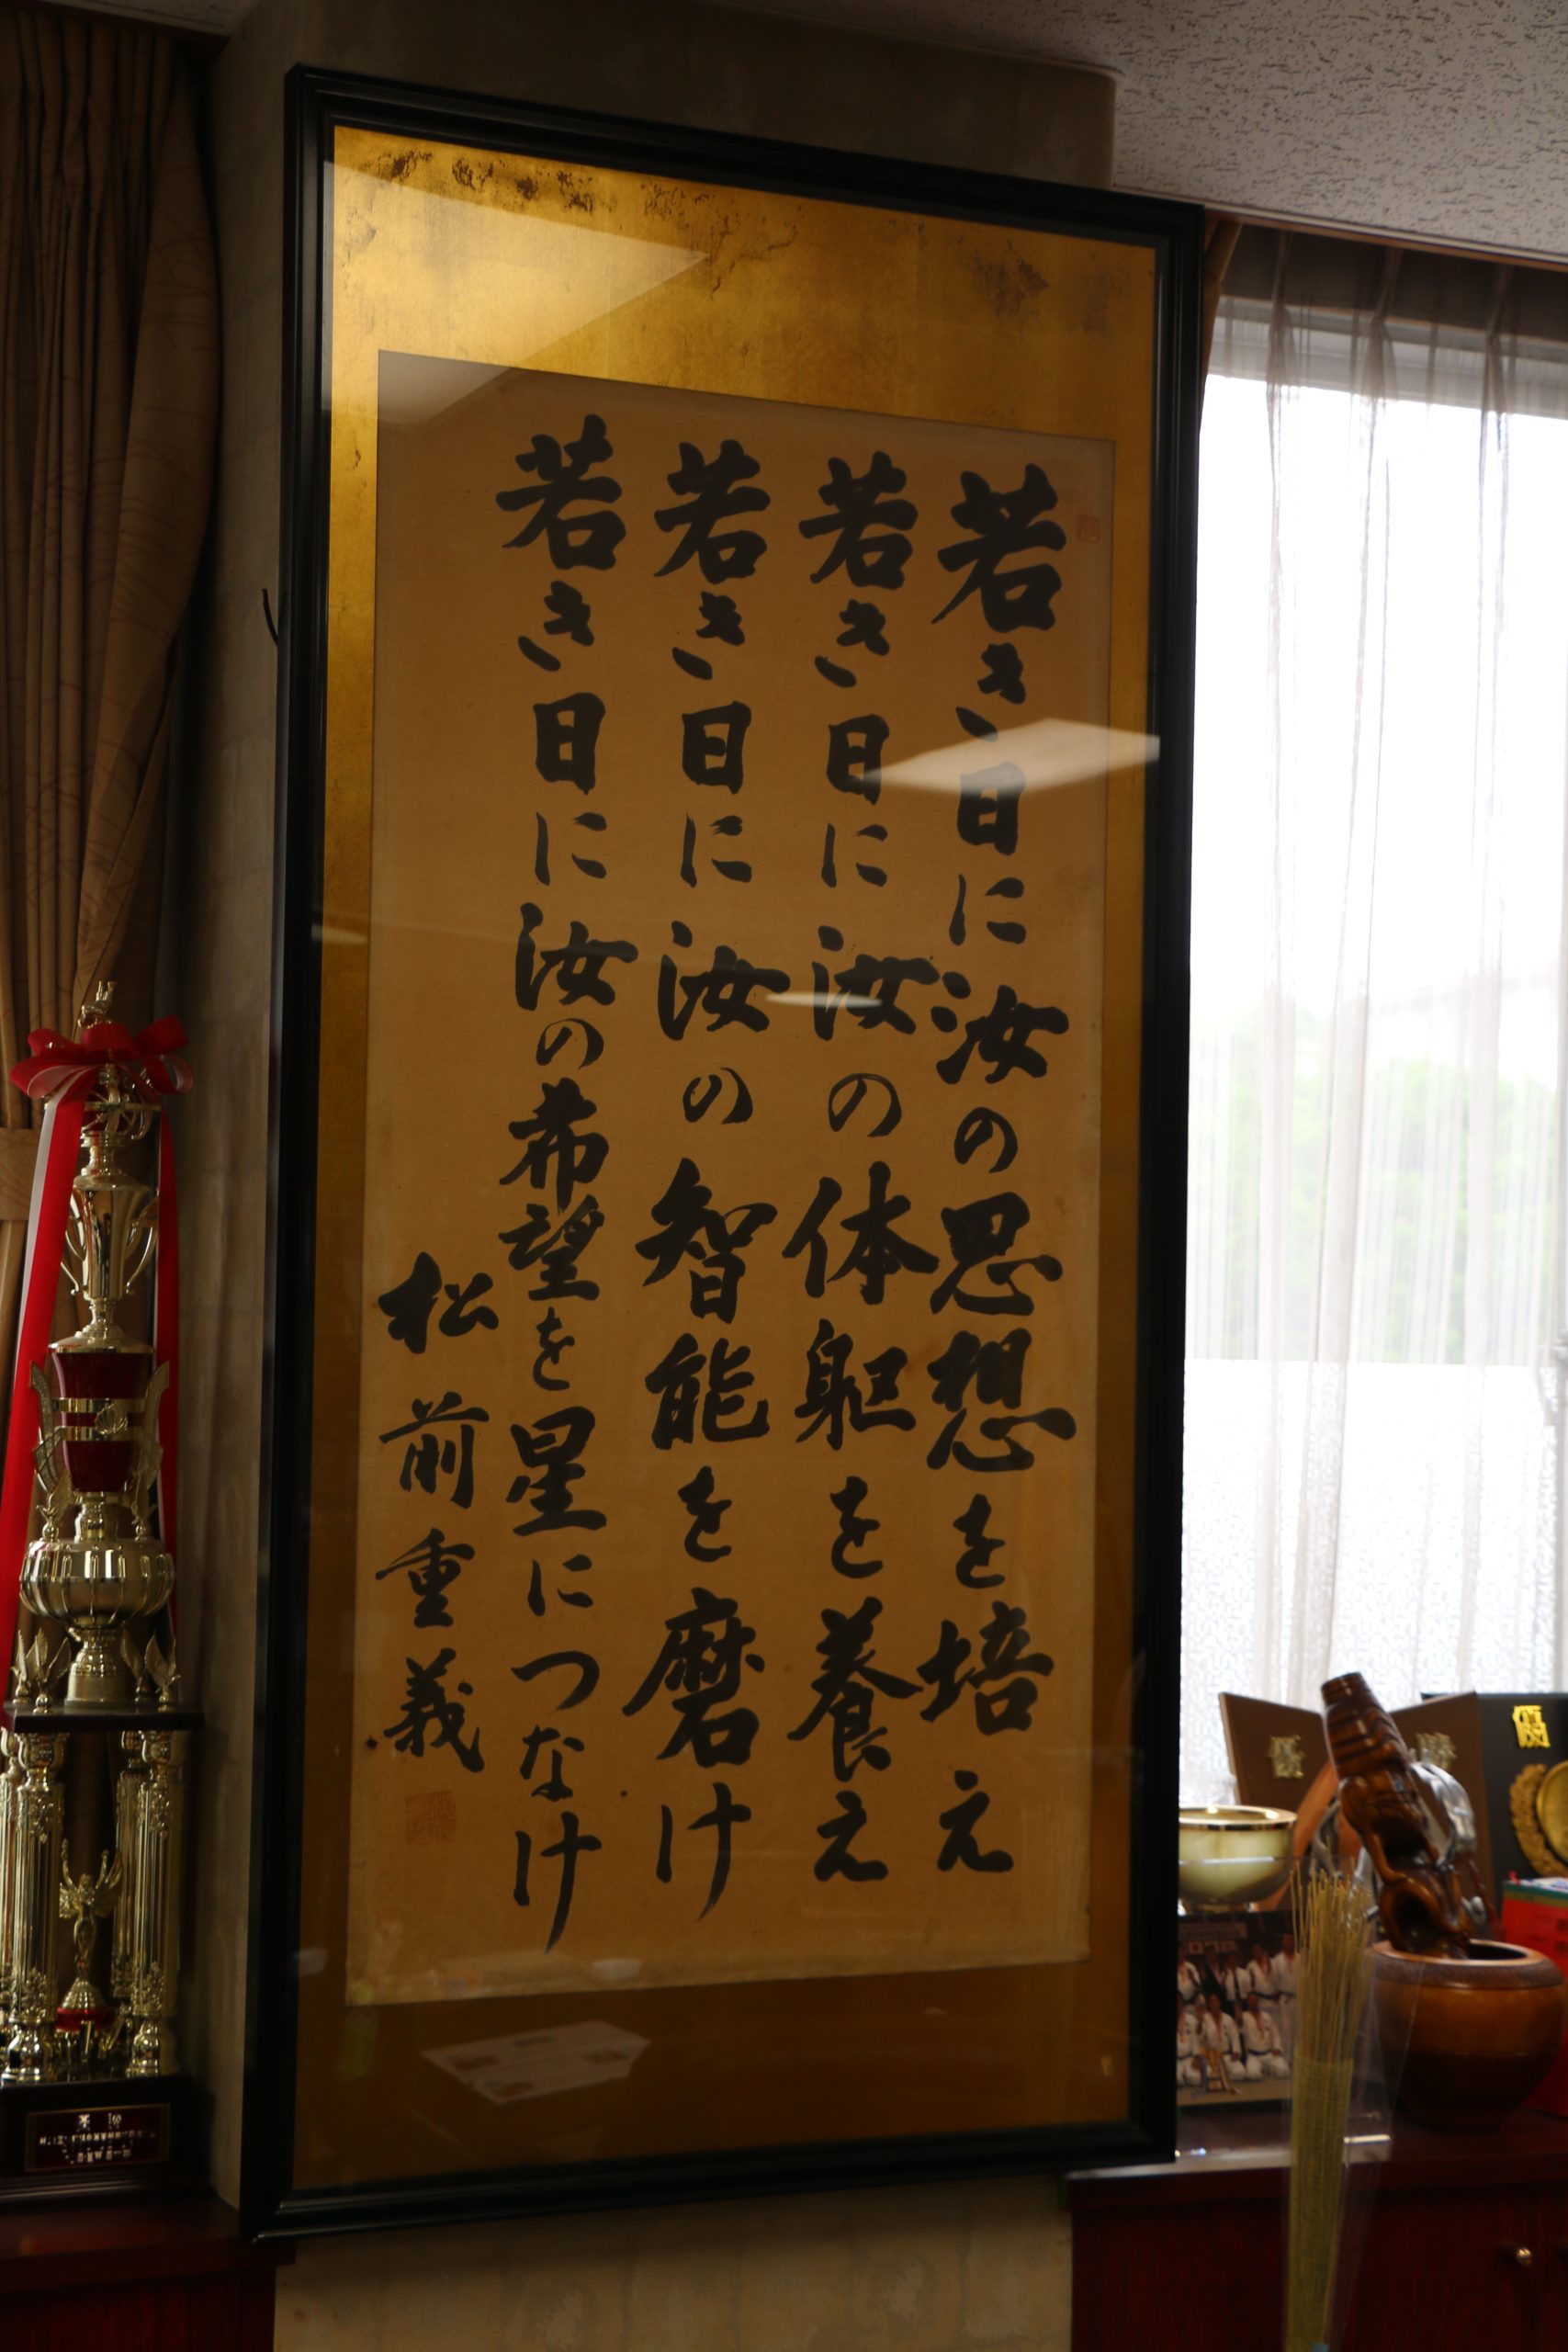 若き日に汝の思想を培え
若き日に汝の体躯を養え
若き日に汝の智能を磨け
若き日に汝の希望を星につなけ
松前重義
優勝